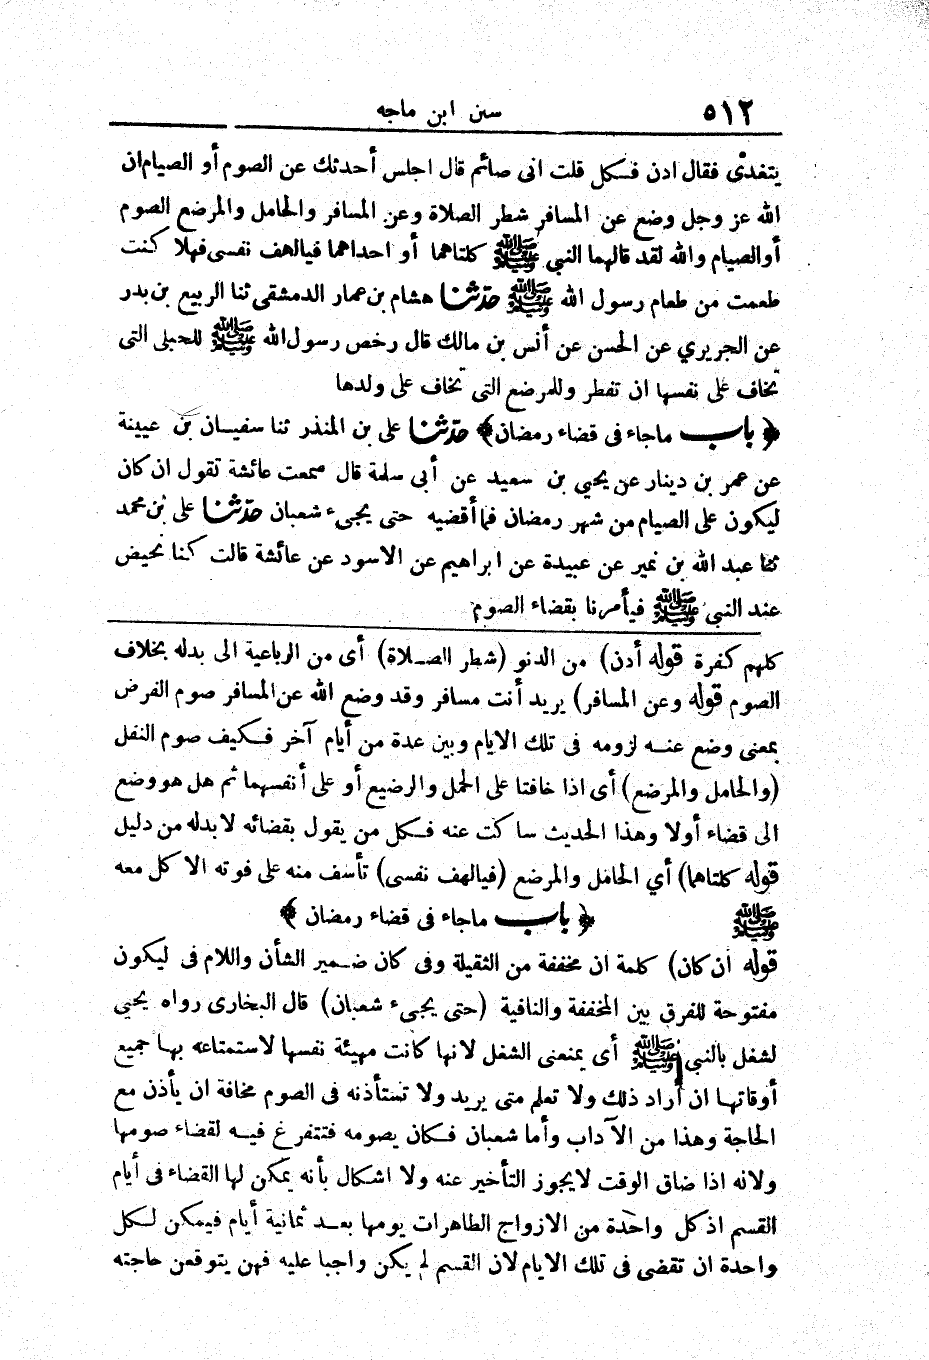 ٥١٢
سنن ابن ماجه
يتغدى فقال ادن فكل قلت انى صائم قال اجلس أحدثك عن الصوم أو الصيام ان
الله عز وجل وضع عن المسافر شطر الصلاة وعن المسافر والحامل والمرضع الصوم
أو الصيام والله لقد قالهما النبي ﷺ كلتاهما أو احداهما فيالهف نفسى فهلا كنت
طعمت من طعام رسول الله ﷺ حدّثنا هشام بن عمار الدمشقى ثنا الربيع بن بدر
عن الجريري عن الحسن عن أنس بن مالك قال رخص رسول الله ﷺ للحبلى التى
تخاف على نفسها ان تفطر وللمرضع التى تخاف على ولدها
﴿ باب ماجاء فى قضاء رمضان﴾ حدّثنا على بن المنذر ثنا سفيان بن عيينة
عن عمر بن دينار عن يحيي بن سعيد عن أبى سلمة قال سمعت عائشة تقول ان كان
ليكون على الصيام من شهر رمضان فما أقضيه حتى يجىء شعبان حدّثنا على بن محمد
ثنا عبد الله بن نمير عن عبيدة عن ابراهيم عن الاسود عن عائشة قالت كنا نحيض
عند النبي ﷺ فيأمرنا بقضاء الصوم
كلهم كفرة قوله أدن) من الدنو (شطر الصلاة) أى من الرباعية الى بدله بخلاف
الصوم قوله وعن المسافر) يريد أنت مسافر وقد وضع الله عن المسافر صوم الفرض
بمعنى وضع عنه لزومه فى تلك الايام وبين عدة من أيام آخر فكيف صوم النفل
(والحامل والمرضع) أى اذا خافتا على الحمل والرضيع أو على أنفسهما ثم هل هو وضع
الى قضاء أولا وهذا الحديث ساكت عنه فكل من يقول بقضائه لا بدله من دليل
قوله كلتاهما) أي الحامل والمرضع (فيالهف نفسى) تأسف منه على فوته الاكل معه
ﷺ ﴿ باب ماجاء فى قضاء رمضان ﴾
قوله ان كان) كلمة ان مخففة من الثقيلة وفى كان ضمير الشأن واللام فى ليكون
مفتوحة للفرق بين المخففة والنافية (حتى يجىء شعبان) قال البخارى رواه يحيى
لشغل بالنبى ﷺ أى يمنعنى الشغل لانها كانت مهيئة نفسها لاستمتاعه بها جميع
أوقاتها ان أراد ذلك ولا تعلم متى يريد ولا تستأذنه فى الصوم مخافة ان يأذن مع
الحاجة وهذا من الآداب وأما شعبان فكان يصومه فتتفرغ فيه لقضاء صومها
ولانه اذا ضاق الوقت لايجوز التأخير عنه ولا اشكال بأنه يمكن لها القضاء فى أيام
القسم اذ كل واحدة من الازواج الطاهرات يومها بعد ثمانية أيام فيمكن لكل
واحدة ان تقضى فى تلك الايام لان القسم لم يكن واجبا عليه فهن يتوقعن حاجته